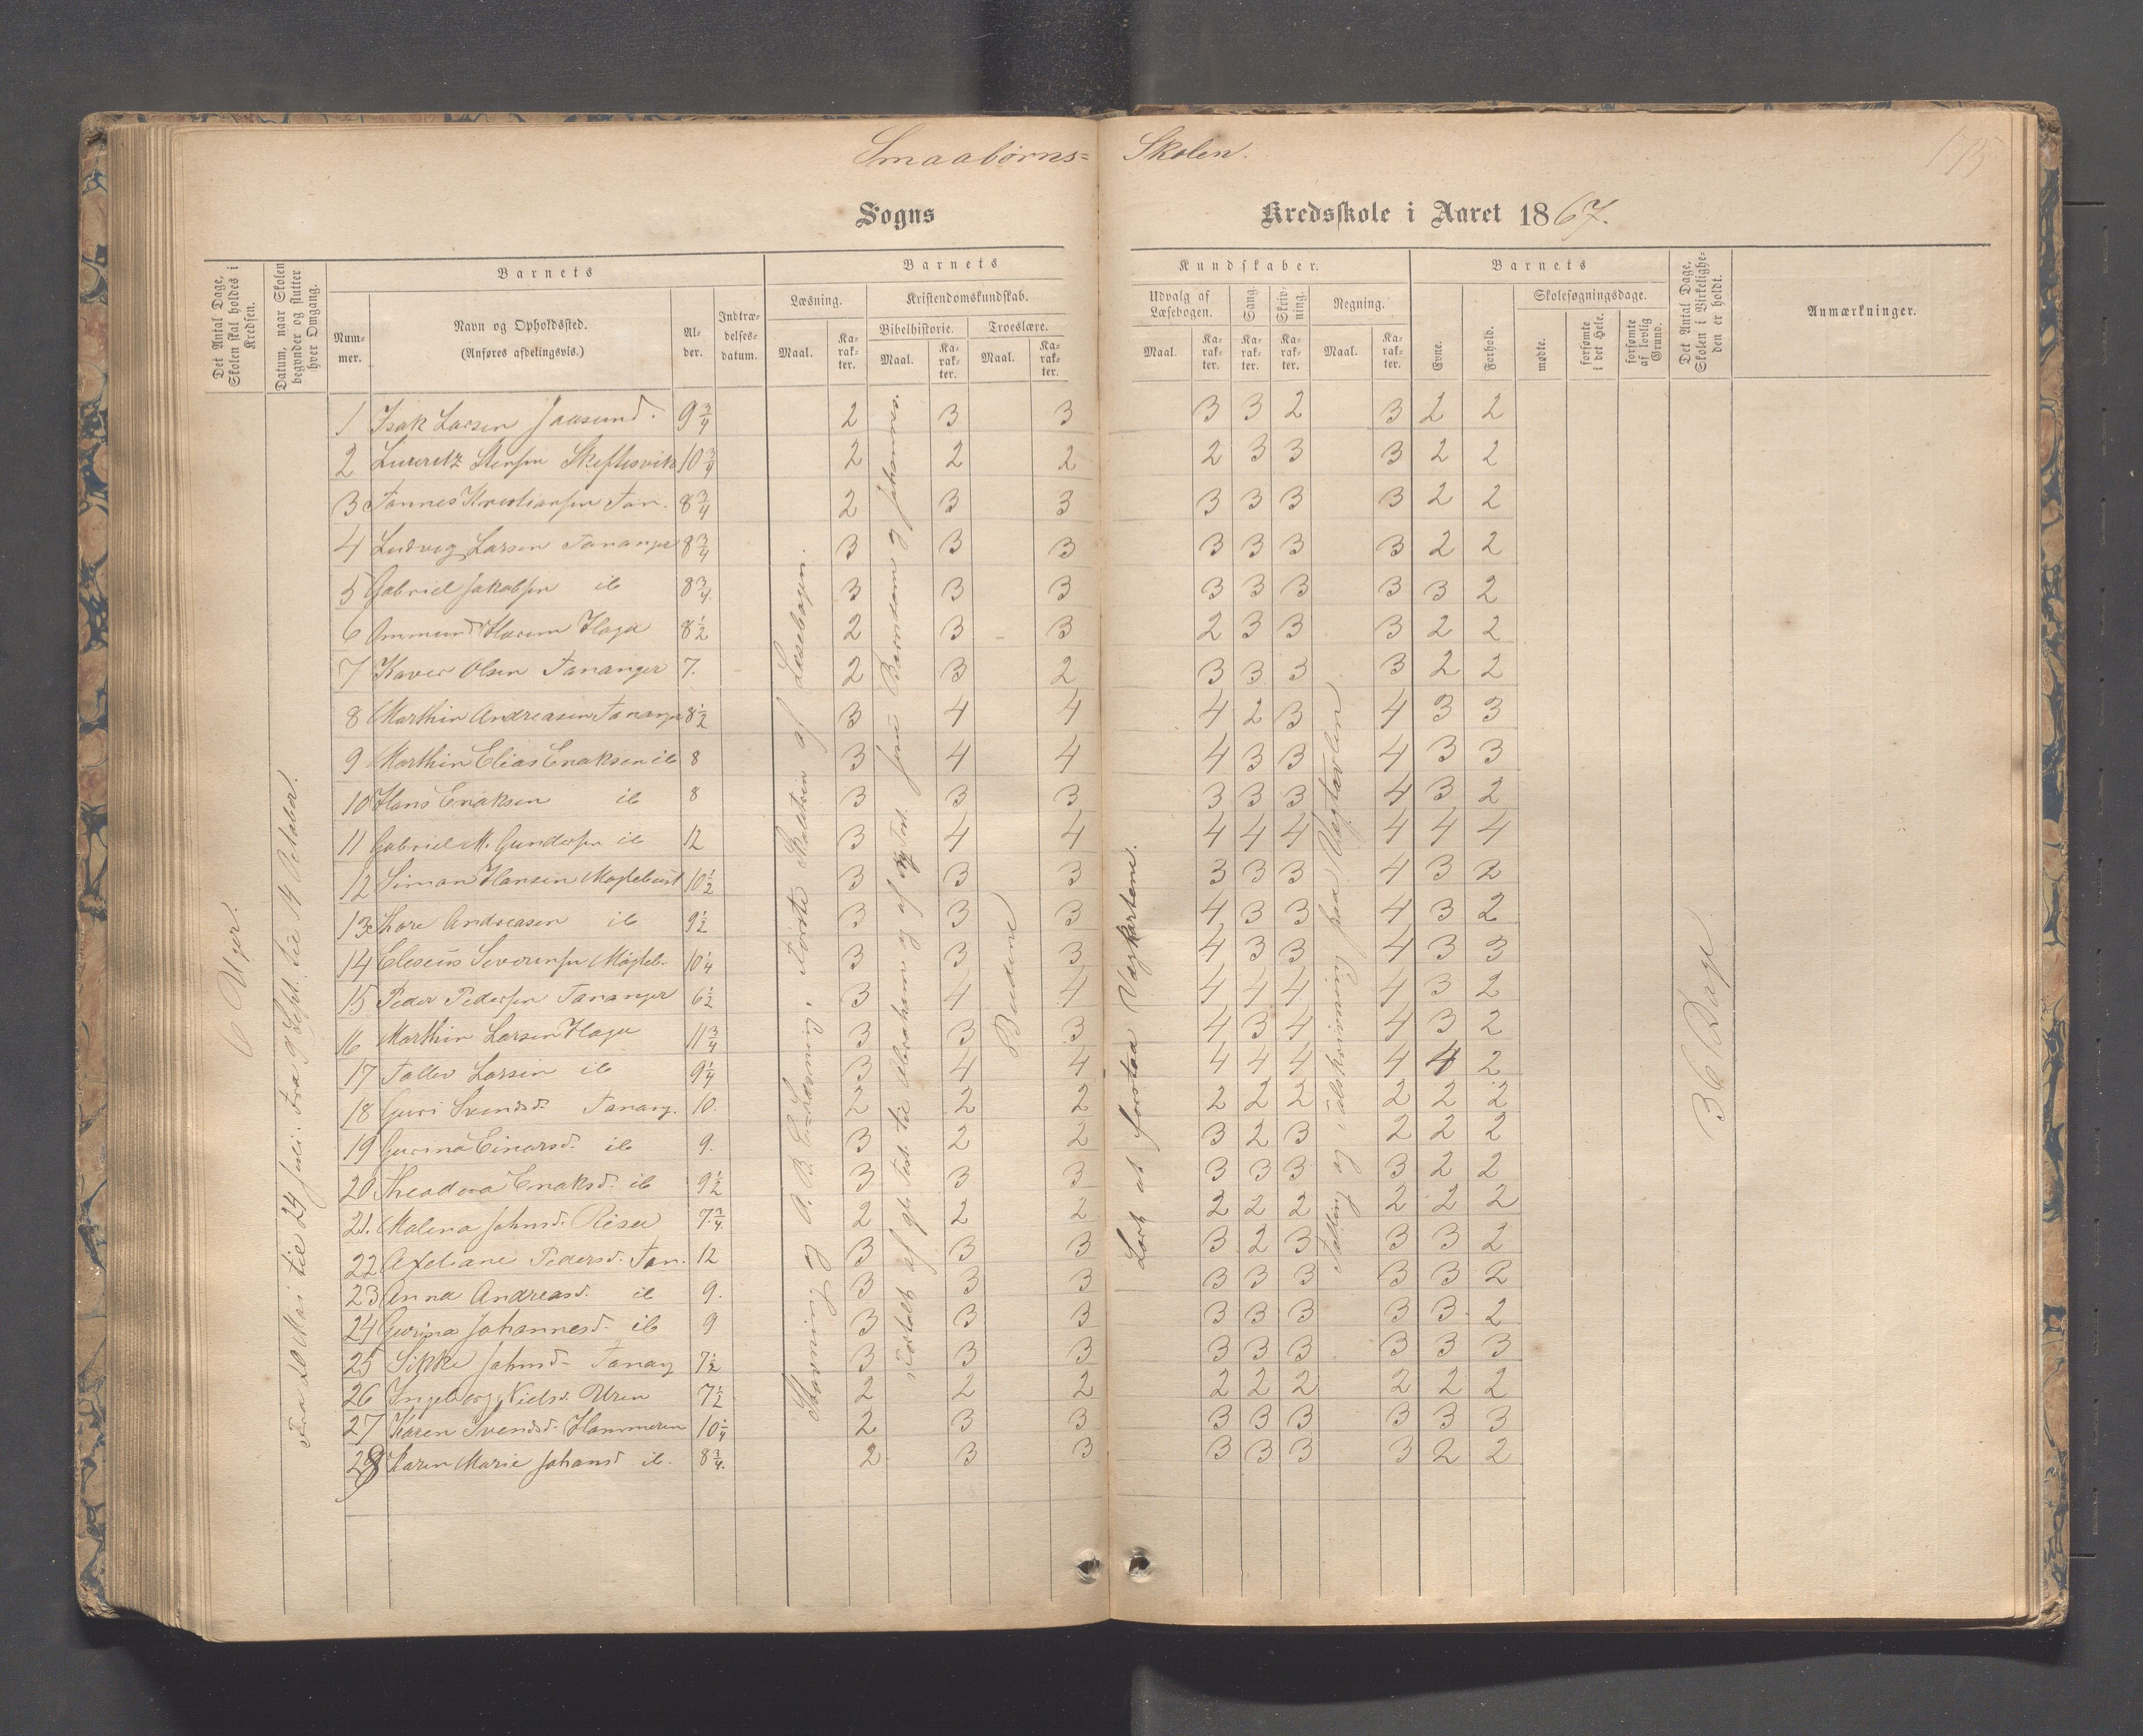 Smaabørns= Skolen.
175
Sogns Kredsskole i Aaret 1867.
Det Antal Dage, Skolen skal holdes i Kredsen.
Datum, naar Skolen begynder og slutter hver Omgang.
Barnets
Nummer.
Navn og Opholdssted.
(Anføres afdelingsvis.)
Alder.
Indtrædelsesdatum.
Barnets Kundskaber.
Læsning.
Maal.
Karakter.
Kristendomskundskab.
Bibelhistorie.
Maal.
Karakter.
Troeslære.
Maal.
Karakter.
Udvalg af Læsebogen.
Maal.
Karakter.
Sang.
Karakter.
Skrivning.
Karakter.
Regning.
Maal.
Karakter.
Barnets
Evne.
Forhold.
Skolesøgningsdage.
mødte.
forsømte i det Hele.
forsømte af lovlig Grund.
Det Antal Dage, Skolen i Virkeligheden er holdt.
Anmærkninger.
6 Uger.
Fra 20 Mai til 24 Juli. Fra 9 Sept. til 14 Octobr.
Stavning og A. B. C. Læsning, Første Skoletrin af Læsebogen.
Fortalt af gl. Test. til Abraham og af ny Test. Jesu Barndom og Johannes.
Budene
Lært at forstaa Vægkartene.
Talling og Talskrivning paa Vægtavlen
36 Dage
1 Isak Larsen Jaasund. 9 3/4 2 3 3 3 3 2 3 2 2
2 Lauritz Stensen Skeftesvik 10 3/4 2 2 2 2 3 3 3 2 2
3 Tønnes Kristiansen Tan. 8 3/4 2 3 3 3 3 3 3 2 2
4 Ludvig Larsen Tananger 8 3/4 3 3 3 3 3 3 3 2 2
5 Gabriel Jakobsen ib 8 3/4 3 3 3 3 3 3 3 3 2
6 Ommund Haaven Haga 8 1/2 2 3 3 2 3 3 3 2 2
7 Olsen Tananger 7. 2 3 2 3 3 3 3 2 2
8 Marthin Andreasen Tananger 8 1/2 3 4 4 4 2 3 4 3 3
9 Marthin Elias Enoksen ib 8 3 4 4 4 3 3 4 3 3
10 Hans Enoksen ib 8 3 3 3 3 3 3 4 3 2
11 Gabriel M. Gundersen ib 12 3 4 4 4 4 4 4 4 4
12 Simon Hansen Møglebust 10 1/2 3 3 3 3 3 3 4 3 2
13 Thore Andreasen ib 9 1/2 3 3 3 4 3 3 4 3 2
14 Eliseus Severinsen Møgleb. 10 1/4 3 3 3 4 3 3 4 3 3
15 Peder Pedersen Tananger 6 1/2 3 4 4 4 4 4 4 3 2
16 Marthin Larsen Haga 11 3/4 3 3 3 4 3 4 4 3 2
17 Tollev Larsen ib 9 1/4 3 4 4 4 4 4 4 4 2
18 Guri Svendsd. Tanang. 10. 2 2 2 2 2 2 2 2 2
19 Gurina Einarsd. ib 9. 3 2 2 3 2 3 2 2 2
20 Theodora Enoksd. ib 9 1/2 3 3 3 3 3 3 3 2 2
21. Malena Johnsd. Risa 7 3/4. 2 2 2 2 2 2 2 2 2
22 Axeliane Pedersd. Tan. 12 3 3 3 3 2 3 3 3 2
23 Anna Andreasd. ib 9. 3 3 3 3 3 3 3 3 2
24 Gurina Johannesd. ib 9 3 3 3 3 3 3 3 3 2
25 Sikke Johnsd. Tanang 7 1/2 3 3 3 3 3 3 3 3 3
26 Ingeborg Nielsd. Uren 7 1/2 2 2 2 2 2 2 2 2 2
27 Karen Svendsd. Hammeren 10 1/4 2 3 3 3 3 3 3 3 3
28 Karen Marie Johansd ib. 8 3/4. 2 3 3 3 3 3 3 2 2